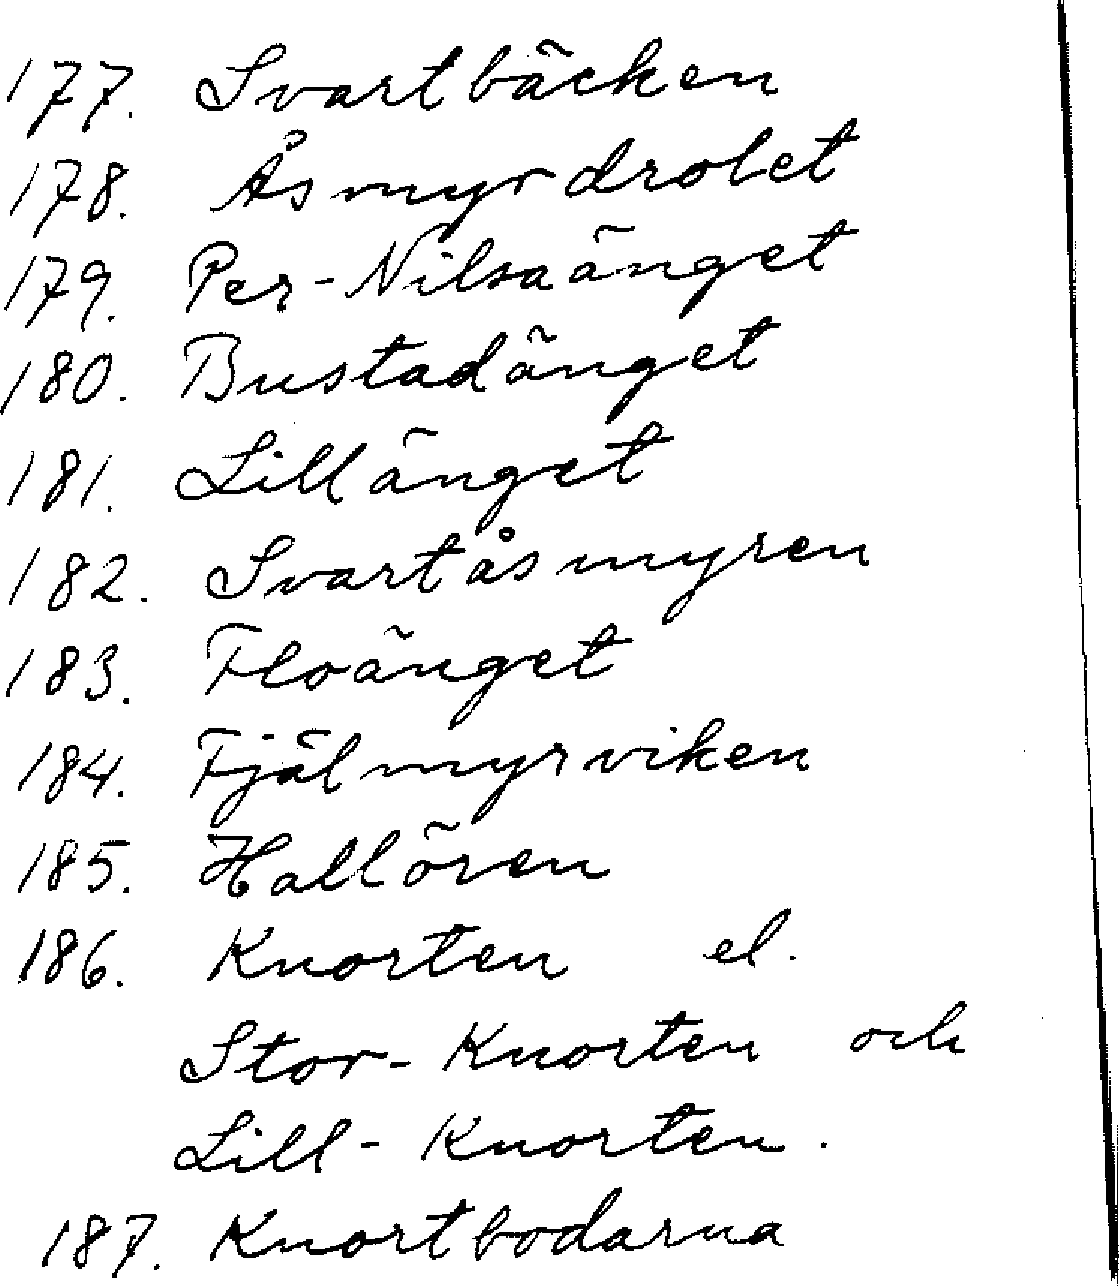 177. Svartbäcken
178. Åsmyrdrolet
179. Per-Nilsaänget
180. Bustadänget
181. Lillänget
182. Svartåsmyren
183. Floänget
184. Fjälmyrviken
185. Hallören
186. Knorten el.
Stor-Knorten och
Lill-Knorten.
187. Knortbodarna